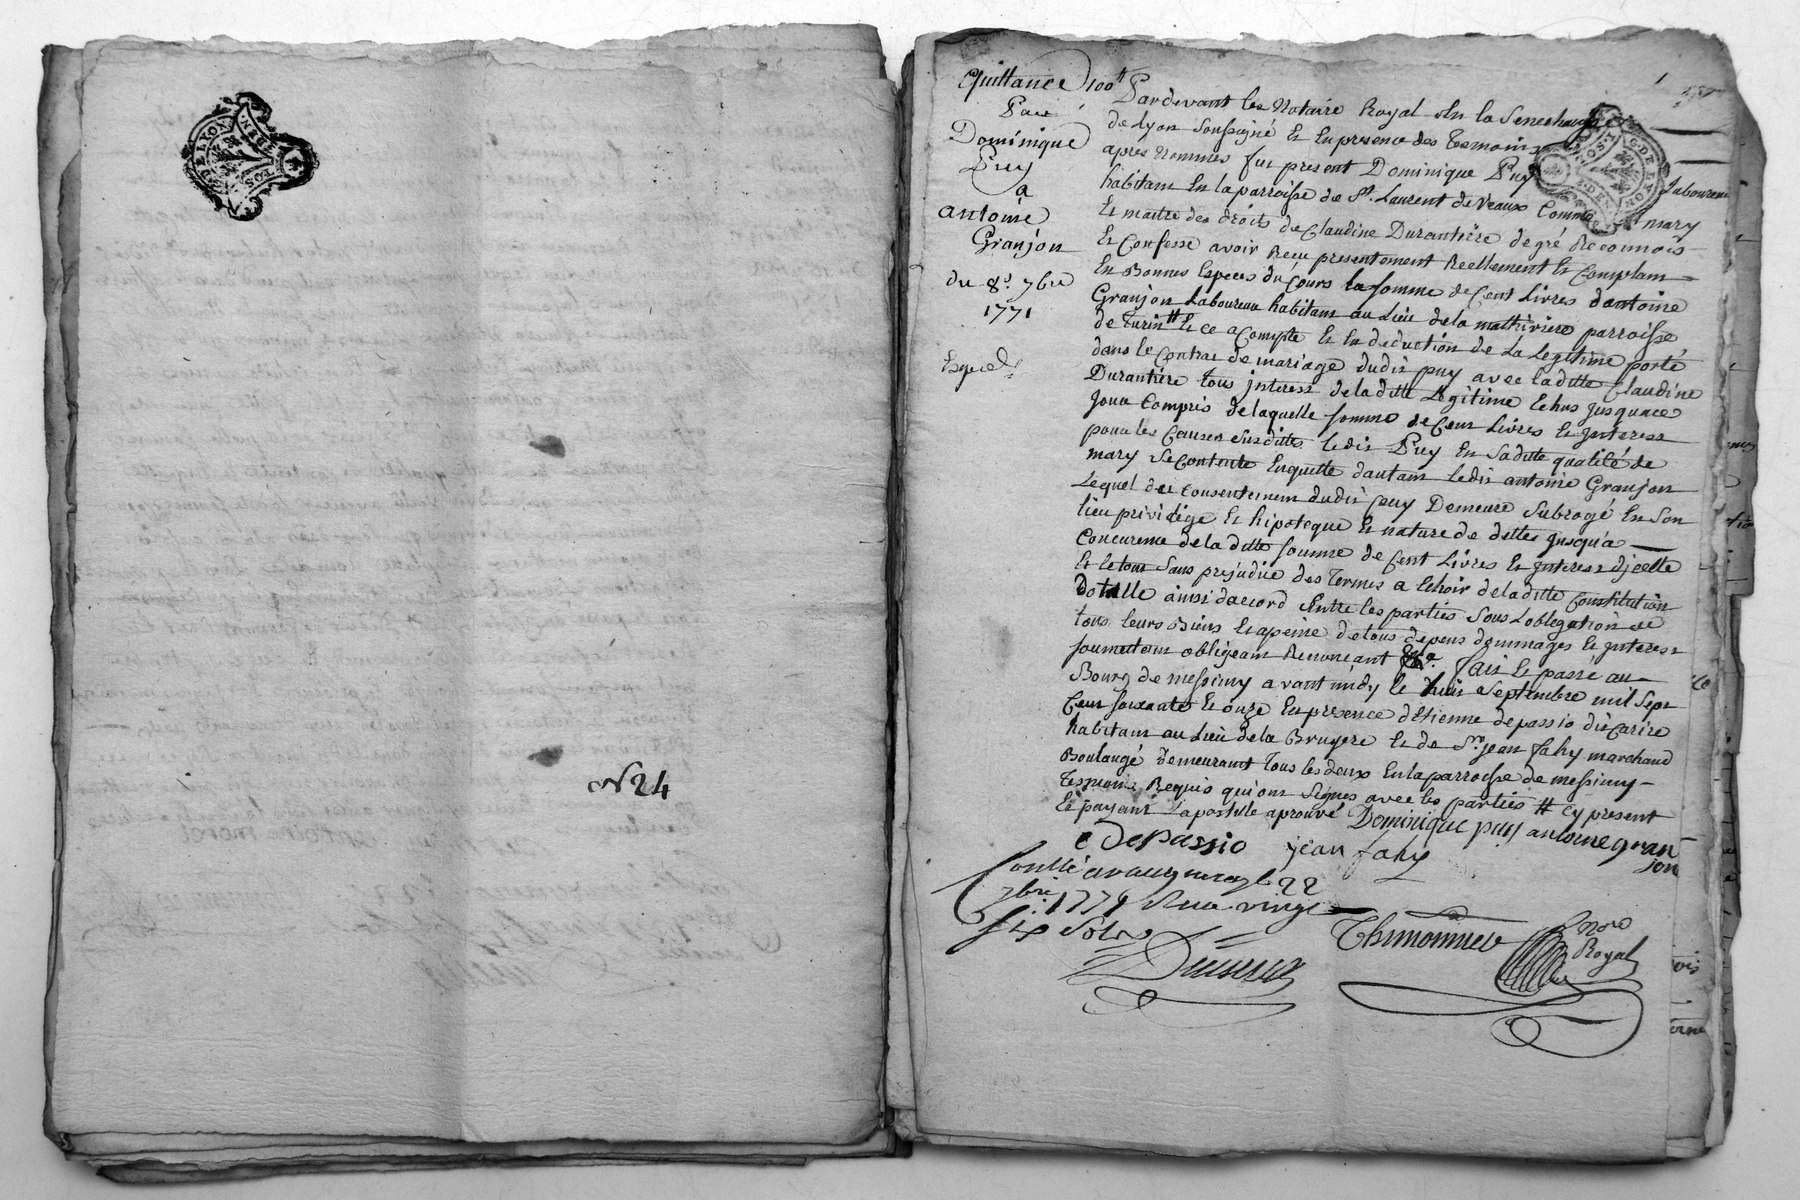 N 24
Quittance 100tt
Par
Dominique
Puy
a
antoine
Granjon
du 8e. 7bre
1771
Pardevant les Notaire Royal En la Senechaussée
de Lyon soussigné Et En presence des Temoins
apres Nommés fut present Dominique Puy Laboureur
habitant En la parroisse de St. Laurent de Veaux Comme mary
Et maitre des droits de Claudine Durantiere de gré Reconnois
Et Confesse avoir Recu presentement Reellement Et Comptam
En Bonnes Especes du Cours la somme de Cent Livres dantoine
Granjon Laboureur habitant au Lieu de la mathiviere parroisse
de Turin tt Et ce a Compte Et En deduction de La Legitime porté
dans le Contrat de mariage dudit puy avec laditte Claudine
Durantiere tous jnterest de laditte Legitime Echus jusqua ce
jour Compris de laquelle somme de Cent Livres Et jnterest
pour les Causes susdittes ledit Puy En saditte qualité de
mary se Contente Enquitte dautant ledit antoine Granjon
Lequel du Consentement dudit puy Demeure subrogé En son
lieu privilege Et hipoteque Et nature de dettes jusqu'a
Concurence de la ditte somme de Cent Livres Et jnterest djcelle
Et le tout sans prejudice des Termes a Echoir de laditte Constitution
Dotalle ainsi daccord Entre les parties sous Lobligation de
tous leurs Biens Et apeine de tous depens dommages Et jnterest
soumettant obligeant Renonceant &a. fait Et passé au
Bourg de messimy avant midy le huit septembre mil sept
Cent soixante Et onze En presence dEtienne depassio dit Carire
habitant au Lieu de la Bruyere Et de Sr. jean fahy marchand
Boulangé demeurant tous les deux En la parroisse de messimy
Temoins Requis qui ont signés avec les parties tt Cy present
Et payant La postille aprouvé Dominique puy antoine gran
jon
e depassio jean fahy
Conllé a vaugneray le 22
7bre 1771 Recu vingt
six sols
Thimonnier Nore
Royal